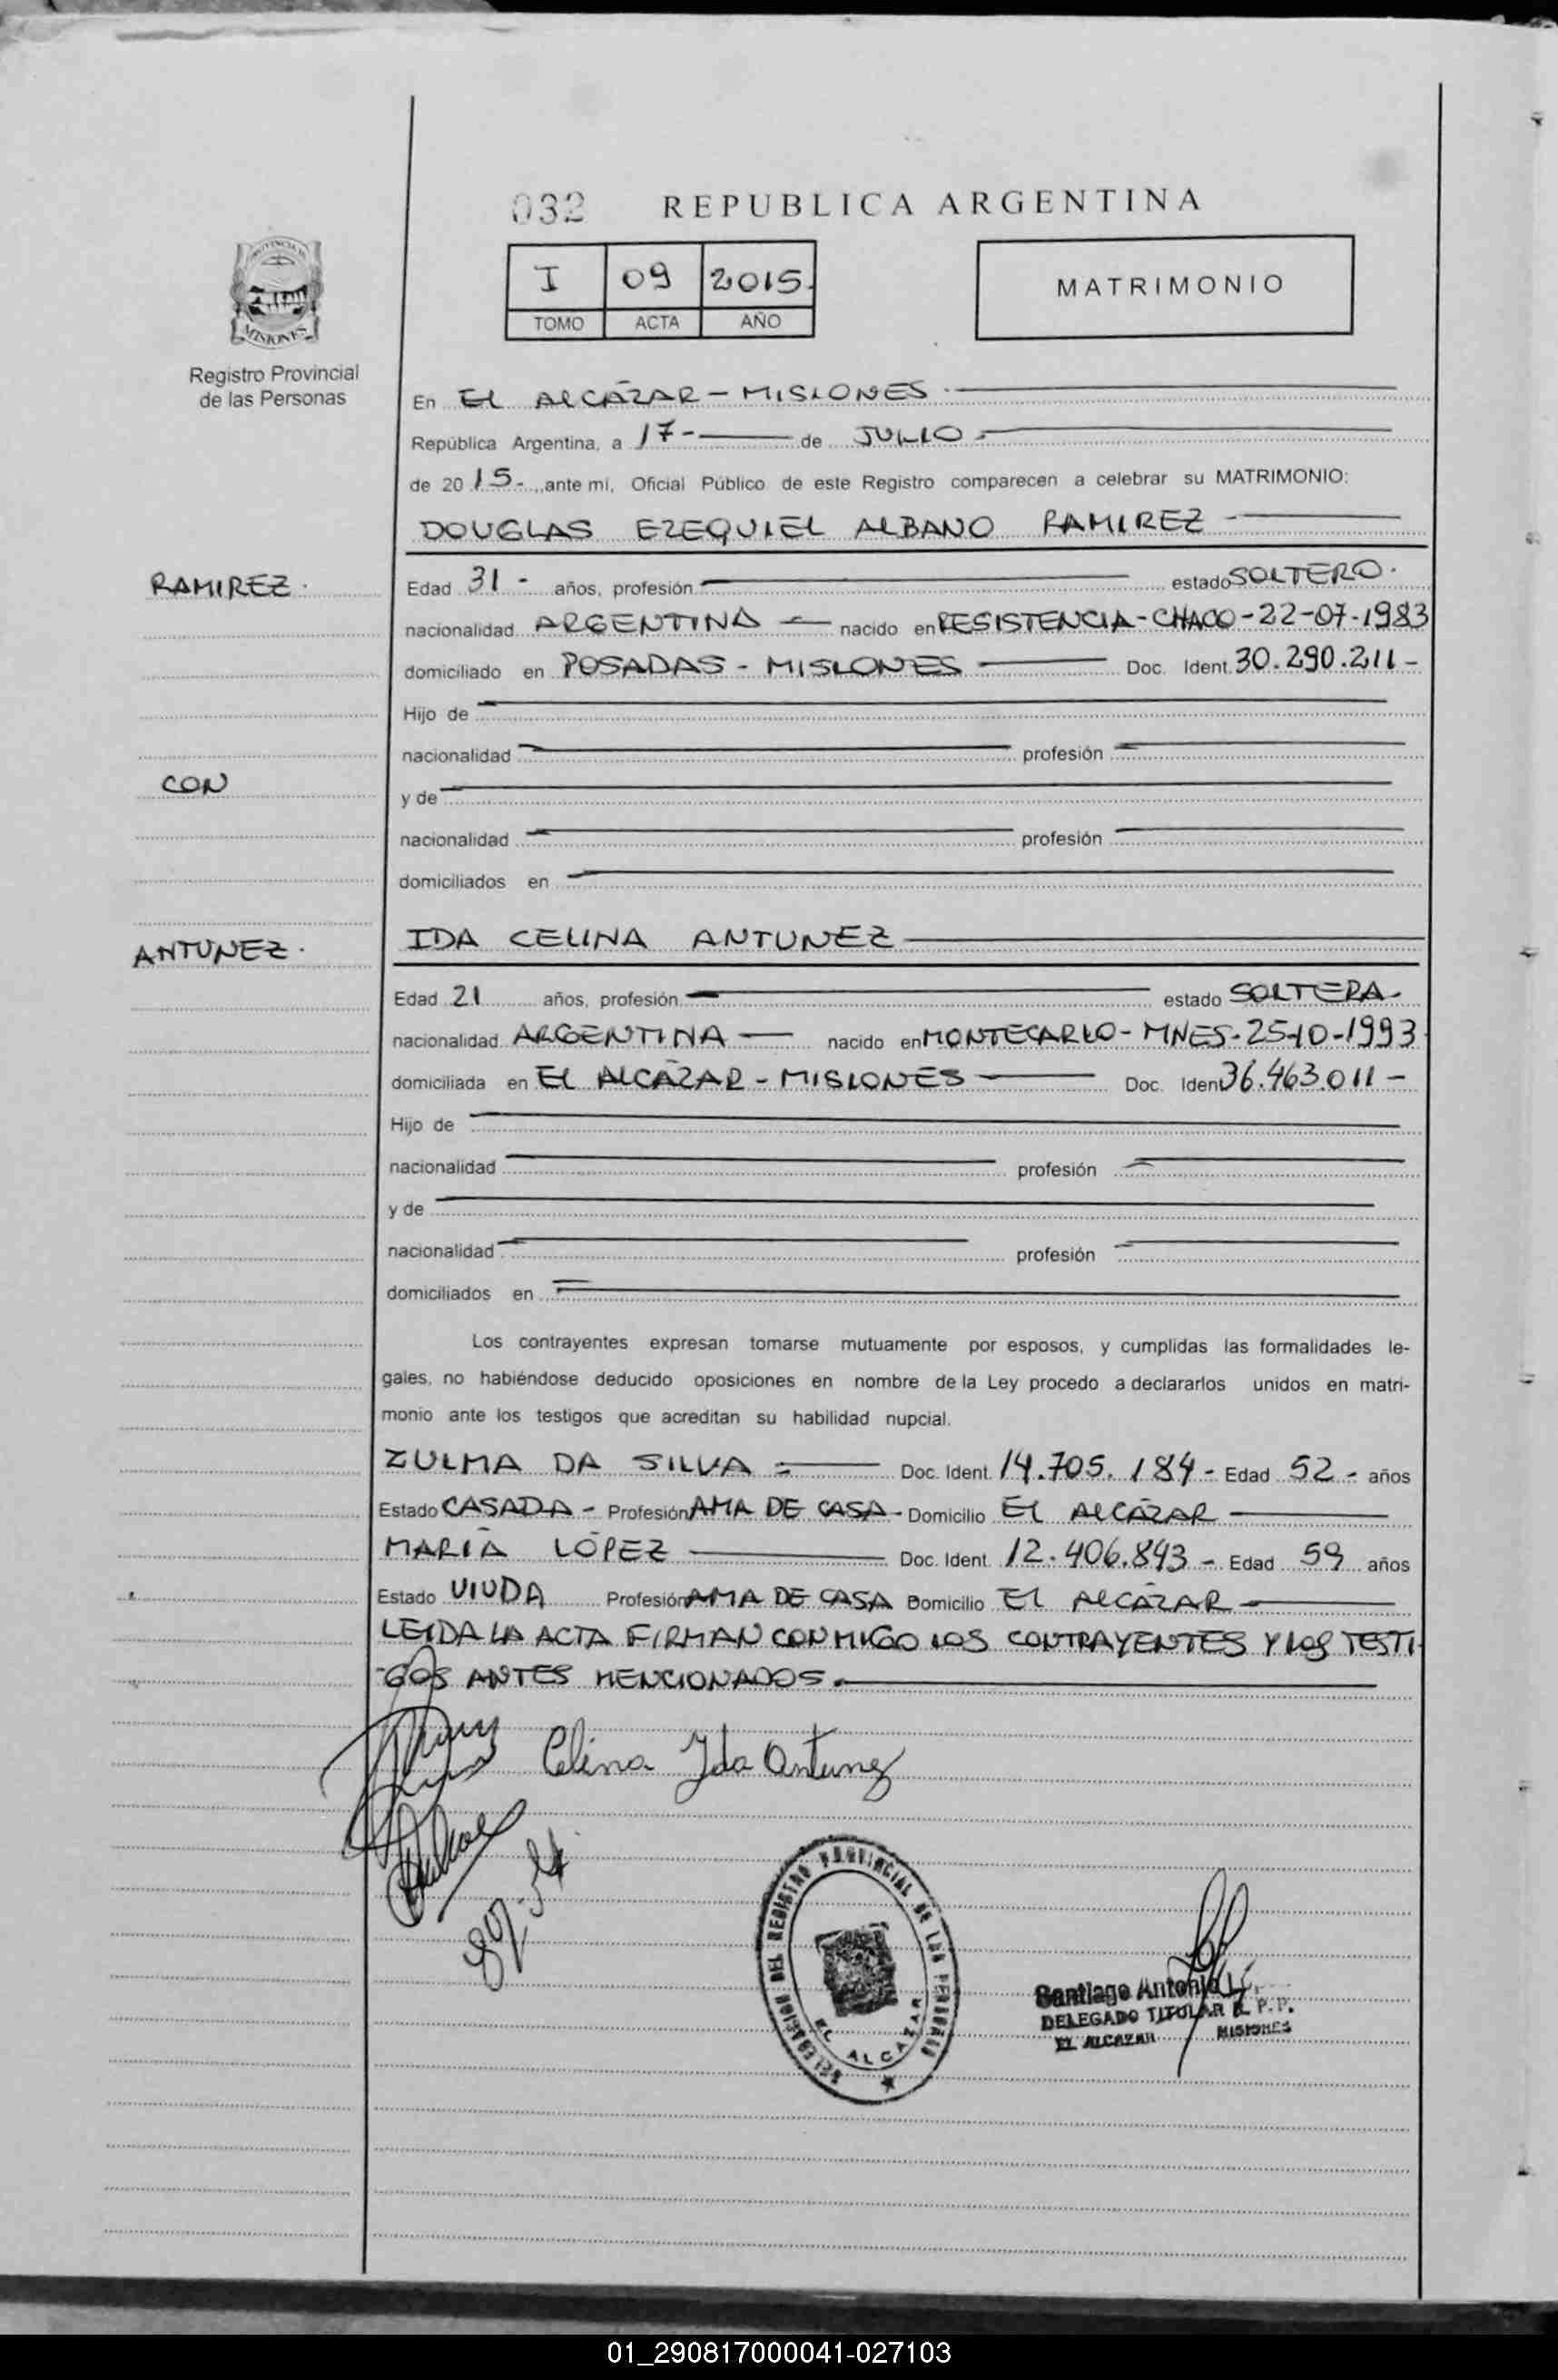 032 REPUBLICA ARGENTINA
I 09 2015.
TOMO ACTA AÑO
MATRIMONIO
PROVINCIA DE
MISIONES
Registro Provincial
de las Personas
En EL ALCÁZAR - MISIONES.
República Argentina, a 17- de JULIO -
de 2015-, ante mí, Oficial Público de este Registro comparecen a celebrar su MATRIMONIO:
DOUGLAS EZEQUIEL ALBANO RAMIREZ -
RAMIREZ.
Edad 31- años, profesión estado SOLTERO.
nacionalidad ARGENTINA - nacido en RESISTENCIA-CHACO-22-07-1983
domiciliado en POSADAS - MISIONES Doc. Ident. 30.290.211-
Hijo de
nacionalidad profesión
CON
y de
nacionalidad profesión
domiciliados en
ANTUNEZ.
IDA CELINA ANTUNEZ
Edad 21 años, profesión estado SOLTERA-
nacionalidad ARGENTINA - nacido en MONTECARLO-MNES-25-10-1993
domiciliada en EL ALCÁZAR - MISIONES Doc. Ident. 36.463.011-
Hijo de
nacionalidad profesión
y de
nacionalidad profesión
domiciliados en
Los contrayentes expresan tomarse mutuamente por esposos, y cumplidas las formalidades le-
gales, no habiéndose deducido oposiciones en nombre de la Ley procedo a declararlos unidos en matri-
monio ante los testigos que acreditan su habilidad nupcial.
ZULMA DA SILVA - Doc. Ident. 14.705.184- Edad 52- años
Estado CASADA - Profesión AMA DE CASA - Domicilio EL ALCÁZAR
MARÍA LÓPEZ Doc. Ident. 12.406.843- Edad 59 años
Estado VIUDA Profesión AMA DE CASA Domicilio EL ALCÁZAR
LEIDA LA ACTA FIRMAN CONMIGO LOS CONTRAYENTES Y LOS TESTI
-GOS ANTES MENCIONADOS.
Celina Ida Antunez
DELEGACION DEL REGISTRO PROVINCIAL DE LAS PERSONAS
EL ALCAZAR
Santiago Antonio
DELEGADO TITULAR R. P. P.
EL ALCAZAR MISIONES
01_290817000041-027103